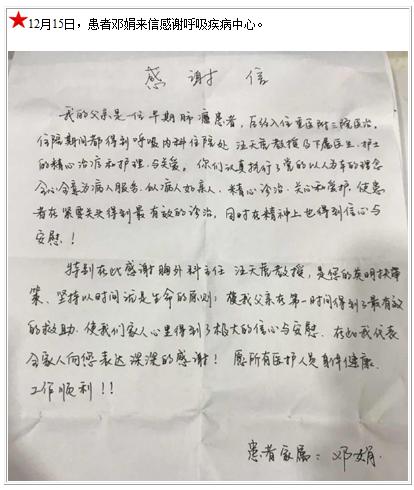 ★12月15日，患者邓娟来信感谢呼吸疾病中心。
感谢信
我的父亲是一位早期肺癌患者，后经入住重医附三院医治，
住院期间都得到呼吸内科住院处 汪天虎教授及下属医生、护士
的精心治疗和护理、与关爱。你们认真执行了党的以人为本的理念
全心全意为病人服务，似病人如亲人，精心诊治、关心和爱护，使患
者在紧要关头得到最有效的诊治，同时在精神上也得到信心与
安慰！
特别在此感谢胸外科主任 汪天虎教授，是您的英明抉择
策、坚持以时间就是生命的原则；使我父亲在第一时间得到了最有效
的救助，使我们家人心里得到了极大的信心与安慰，在此我代表
全家人向您表达深深的感谢！愿所有医护人员身体健康、
工作顺利！！
患者家属：邓娟